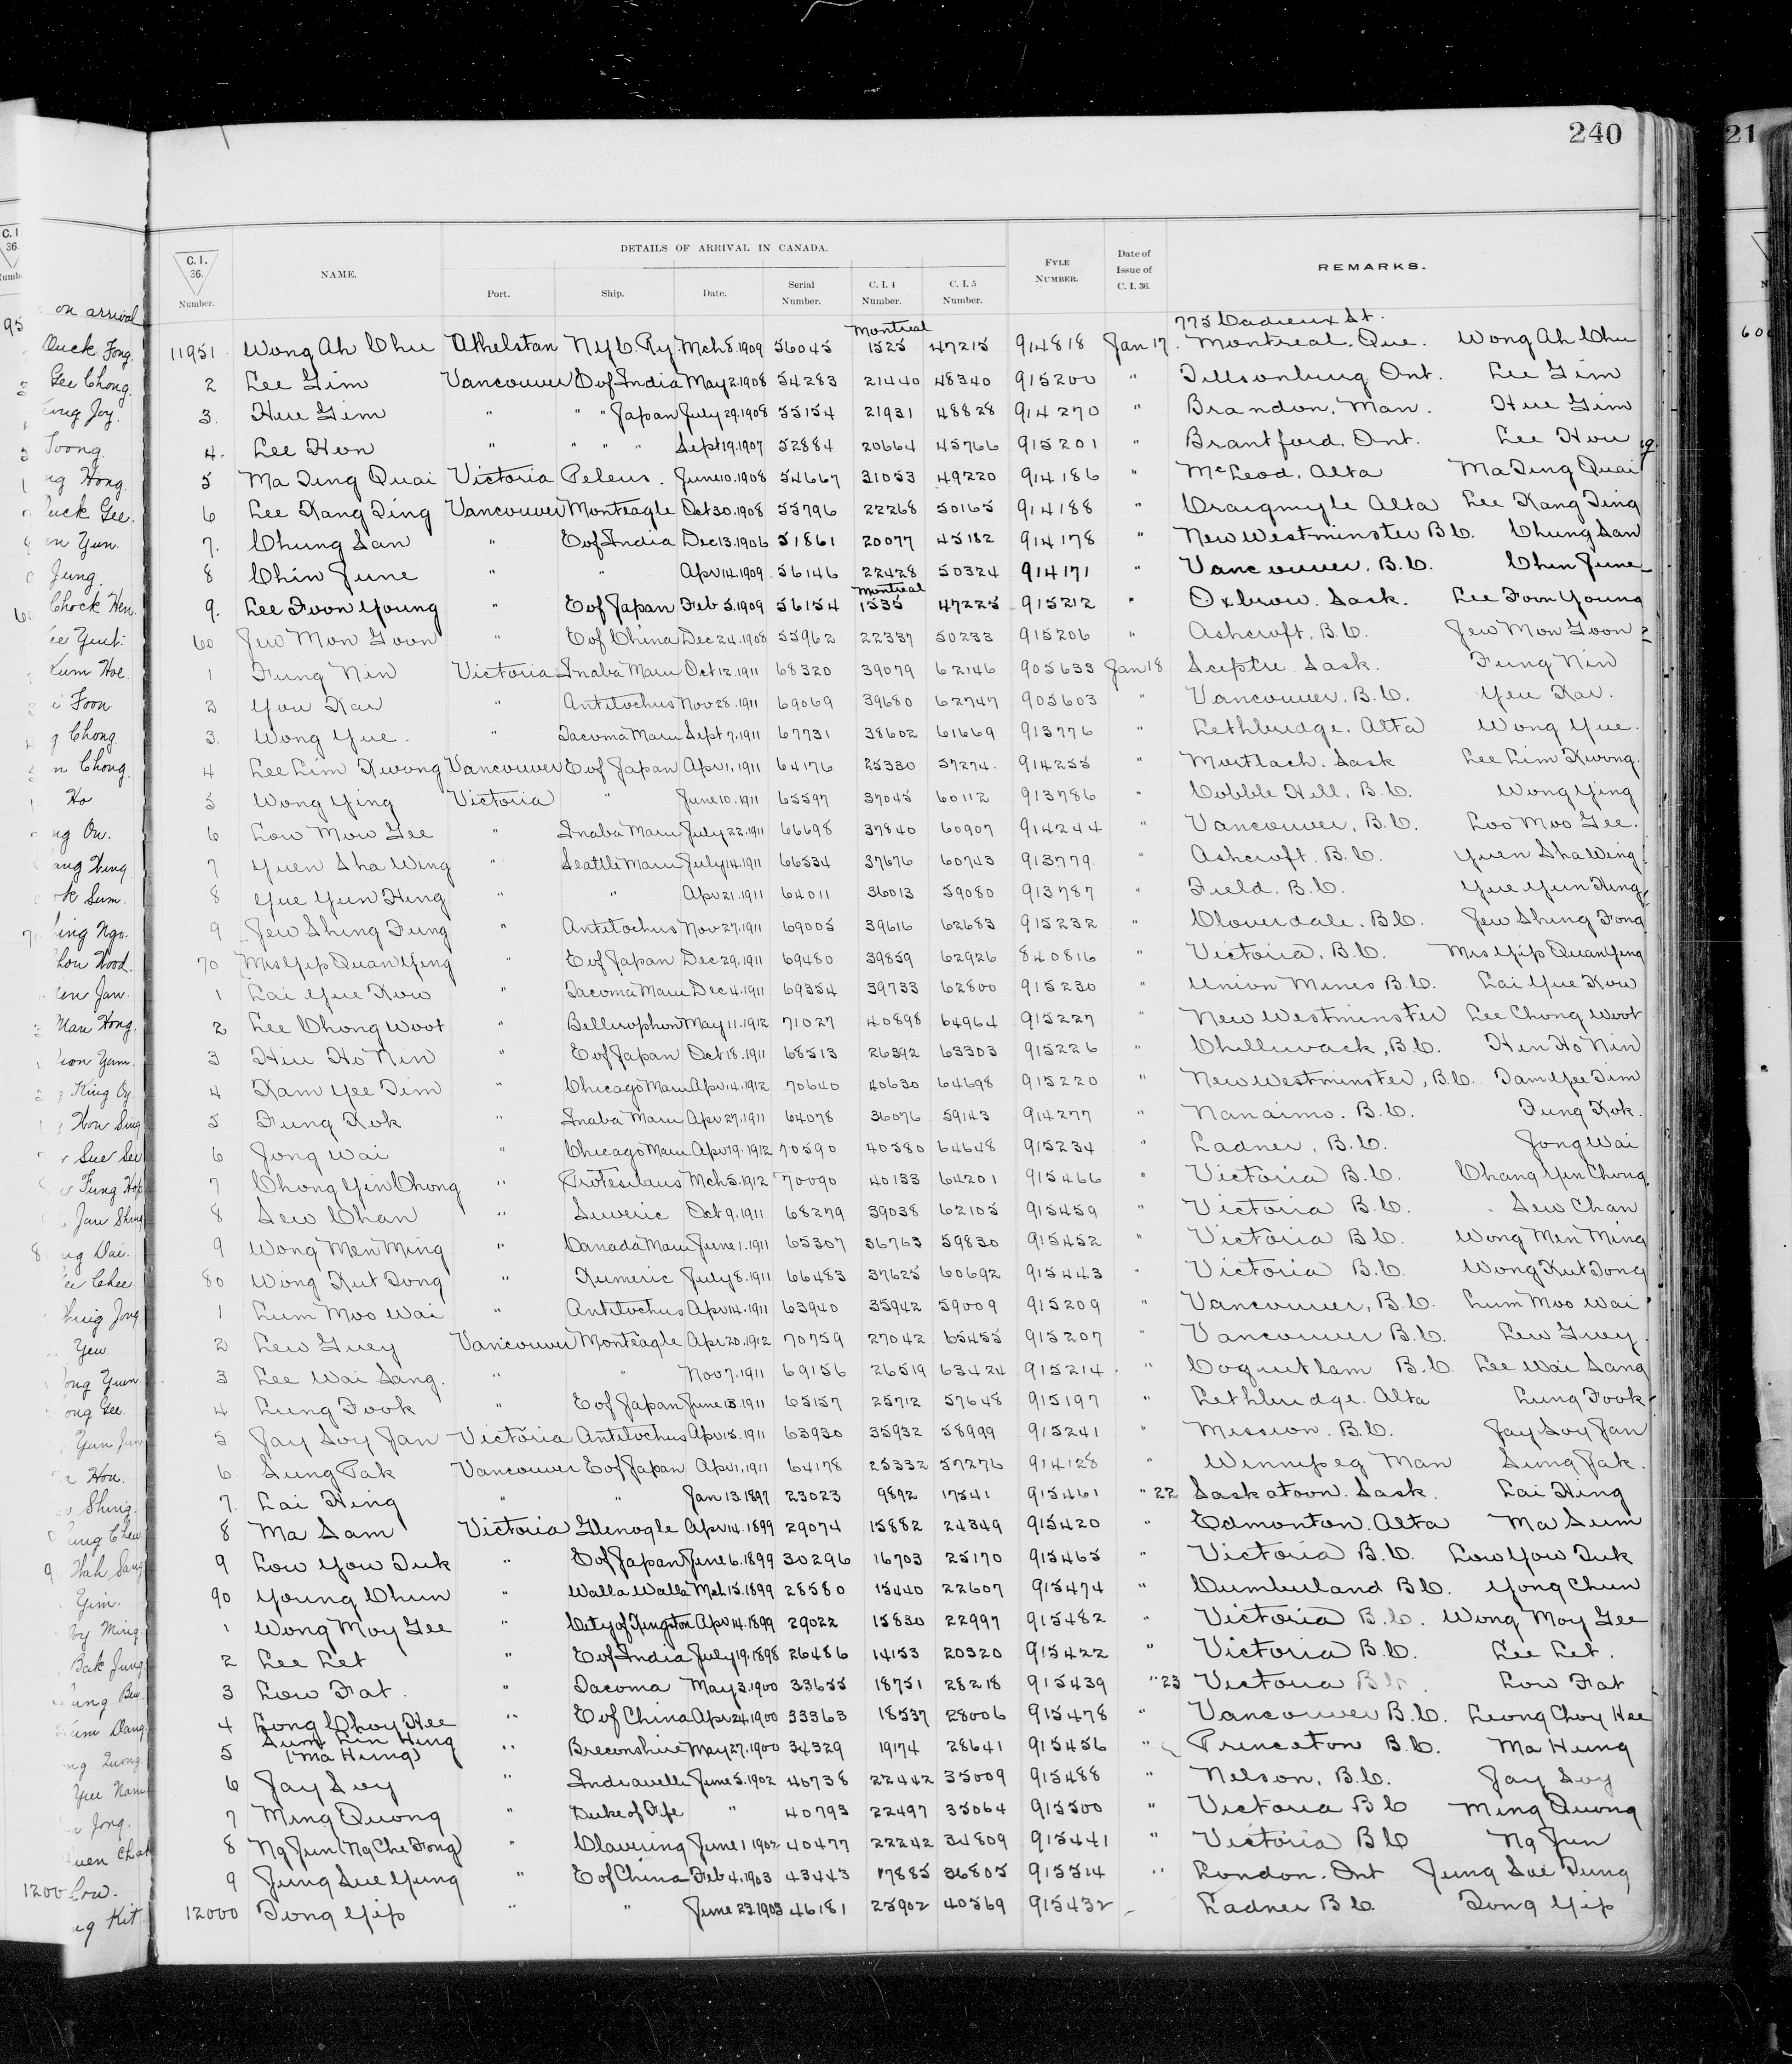 240
21
DETAILS OF ARRIVAL IN CANADA.
C. I. 36. Number. NAME. Port. Ship. Date. Serial Number. C. I. 4 Number. C. I. 5 Number. FYLE NUMBER. Date of Issue of C. I. 36. REMARKS.
775 Cadieux St.
11951 Wong Ah Chu Athelstan N.Y.C. Ry. Mch 5. 1909 56045 Montreal 1525 47215 914818 Jan 17. Montreal. Que. Wong Ah Chu
2 Lee Gim Vancouver E of India May 2. 1908 54283 21440 48340 915200 " Tillsonburg Ont. Lee Gim
3. Hue Gim " " " Japan July 29. 1908 55154 21931 48828 914270 " Brandon, Man. Hue Gim
4. Lee Hon " " " " Sept 19. 1907 52884 20664 45766 915201 " Brantford. Ont. Lee Hou
5 Ma Ding Quai Victoria Peleus. June 10. 1908 54667 31053 49220 914186 " McLeod. Alta Ma Ding Quai
6 Lee Kang Ding Vancouver Monteagle Oct 30. 1908 55796 22268 50165 914188 " Craigmyle Alta Lee Kang Ding
7. Chung San " E of India Dec 13. 1906 51861 20077 45182 914178 " New Westminster B.C. Chung San
8 Chin June " " Apr 14. 1909 56146 22428 50324 914171 " Vancouver. B.C. Chin June
9. Lee Foon Young " E of Japan Feb 5. 1909 56154 Montreal 1535 47225 915212 " Oxbrow. Sask. Lee Foon Young
60 Jew Mon Goon " E of China Dec 24. 1908 55962 22337 50233 915206 " Ashcroft. B.C. Jew Mon Goon
1 Fung Nin Victoria Inaba Maru Oct 12. 1911 68320 39079 62146 905633 Jan 18 Sceptre Sask. Fung Nin
2 You Kar " Antilochus Nov 28. 1911 69069 39680 62747 905603 " Vancouver. B.C. Yeu Kar.
3. Wong Yue. " Tacoma Maru Sept 7. 1911 67731 38602 61669 913776 " Lethbridge. Alta Wong Yue.
4 Lee Lim Kwong Vancouver E of Japan Apr 1. 1911 64176 25330 57274. 914255 " Mortlach. Sask Lee Lim Kwong.
5 Wong Ying Victoria " June 10. 1911 65597 37045 60112 913786 " Cobble Hill, B.C. Wong Ying
6 Low Mow Gee " Inaba Maru July 22. 1911 66698 37840 60907 914244 " Vancouver, B.C. Loo Moo Gee.
7 Yuen Sha Wing " Seattle Maru July 14. 1911 66534 37676 60743 913779 " Ashcroft. B.C. Yuen Sha Wing
8 Yue Yun Hing " " Apr 21. 1911 64011 36013 59080 913787 " Field. B.C. Yue Yun Hing
9 Jew Shing Fung " Antilochus Nov 27. 1911 69005 39616 62683 915232 " Cloverdale. B.C. Jew Shing Fong
70 Mrs Yip Quan Ying " E of Japan Dec 29. 1911 69480 39859 62926 840816 " Victoria, B.C. Mrs Yip Quan Ying
1 Lai Yue Kow " Tacoma Maru Dec 4. 1911 69354 39733 62800 915230 " Union Mines B.C. Lai Yue Kow
2 Lee Chong Woot " Bellerophon May 11. 1912 71027 40898 64964 915227 " New Westminster Lee Chong Woot
3 Hiu Ho Nin " E of Japan Oct 18. 1911 68513 26392 63303 915226 " Chilliwack, B.C. Hen Ho Nin
4 Kam Yee Dim " Chicago Maru Apr 14. 1912 70640 40630 64698 915220 " New Westminster, B.C. Dam Yee Dim
5 Fung Kok " Inaba Maru Apr 27. 1911 64078 36076 59143 914277 " Nanaimo. B.C. Fung Kok.
6 Jong Wai " Chicago Maru Apr 19. 1912 70590 40580 64648 915234 " Ladner, B.C. Jong Wai
7 Chong Yin Chong " Protesilaus Mch 5. 1912 70090 40133 64201 915466 " Victoria B.C. Chang Yin Chong
8 Sew Chan " Suveric Oct 9. 1911 68279 39038 62105 915459 " Victoria B.C. Sew Chan
9 Wong Men Ming " Canada Maru June 1. 1911 65307 36763 59830 915452 " Victoria B.C. Wong Men Ming
80 Wong Kut Dong " Kumeric July 8. 1911 66483 37625 60692 915443 " Victoria B.C. Wong Kut Dong
1 Lum Moo Wai " Antilochus Apr 14. 1911 63940 35942 59009 915209 " Vancouver, B.C. Lum Moo Wai
2 Lew Guey Vancouver Monteagle Apr 20. 1912 70759 27042 65455 915207 " Vancouver B.C. Lew Guey
3 Lee Wai Sang. " " Nov 7. 1911 69156 26519 63424 915214 " Coquitlam B.C. Lee Wai Sang
4 Lung Fook " E of Japan June 13. 1911 65157 25712 57648 915197 " Lethbridge. Alta Lung Fook
5 Jay Soy Jan Victoria Antilochus Apr 15. 1911 63930 35932 58999 915241 " Mission. B.C. Jay Soy Jan
6. Sung Pak Vancouver E of Japan Apr 1. 1911 64178 25332 57276 914128 " Winnipeg Man Sung Pak.
7. Lai Hing " " Jan 13. 1897 23023 9892 17541 915461 " 22 Saskatoon. Sask. Lai Hing
8 Ma Sam Victoria Glenogle Apr 14. 1899 29074 15882 24349 915420 " Edmonton. Alta Ma Sum
9 Low Yow Duk " E of Japan June 6. 1899 30296 16703 25170 915465 " Victoria B.C. Low Yow Duk
90 Young Chun " Walla Walla Mch 15. 1899 28580 15440 22607 915474 " Cumberland B.C. Yong Chun
1 Wong Moy Gee " City of Kingston Apr 14. 1899 29022 15830 22997 915482 " Victoria B.C. Wong Moy Gee
2 Lee Let " E of India July 19. 1898 26486 14153 20320 915422 " Victoria B.C. Lee Let.
3 Low Fat. " Tacoma May 3. 1900 33655 18751 28218 915439 " 23 Victoria B.C. Low Fat
4 Leong Choy Hee " E of China Apr 24. 1900 33363 18537 28006 915478 " Vancouver B.C. Leong Choy Hee
5 Sum Lin Hing (Ma Hung) " Breconshire May 27. 1900 34329 19174 28641 915456 " Princeton B.C. Ma Hung
6 Jay Soy " Indravelli June 5. 1902 40738 22442 35009 915488 " Nelson, B.C. Jay Soy
7 Ming Quong " Duke of Fife " 40793 22497 35064 915500 " Victoria B C Ming Quong
8 Ng Jun (Ng Che Fong) " Clavering June 1 1902 40477 22242 34809 915441 " Victoria B C Ng Jun
9 Jung Sue Yung " E of China Feb 4. 1903 43443 17885 36805 915514 " London. Ont Jung Sue Dung
12000 Dong Yip " " June 23. 1903 46181 25902 40569 915432 Ladner B C. Dong Yip